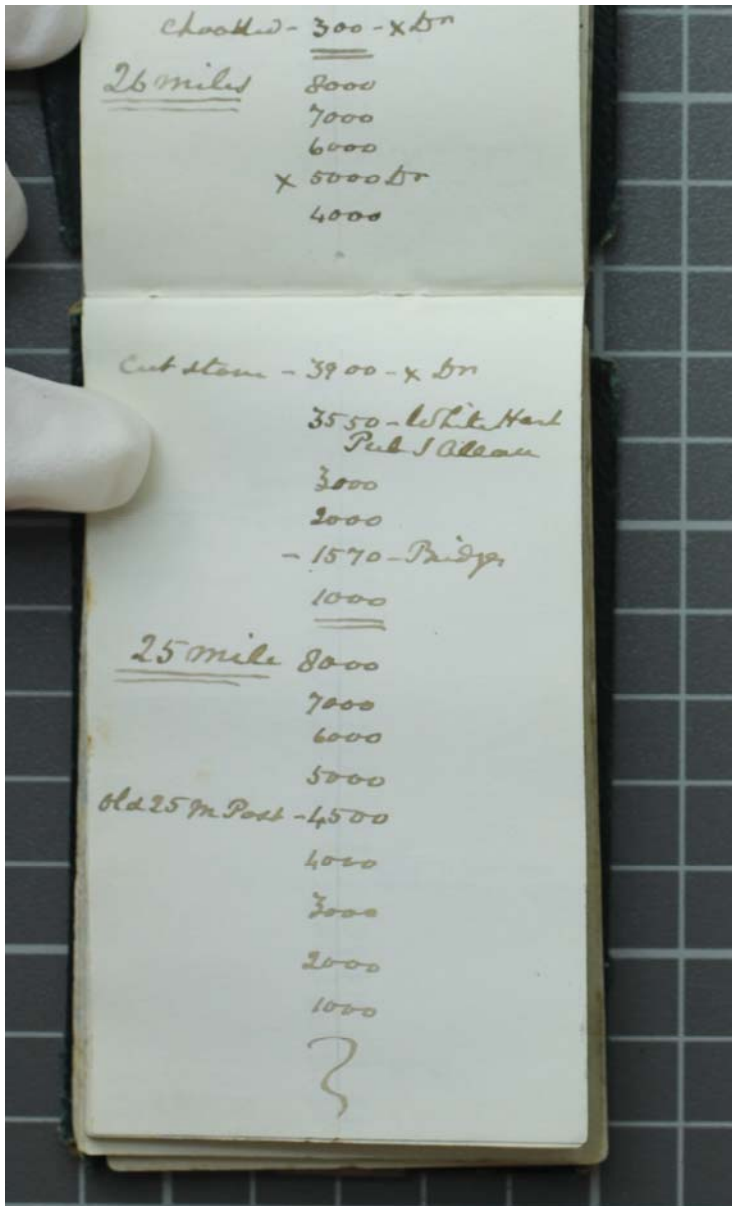 - 300 - x Dn
26 miles 8000
7000
6000
x 5000 Dn
4000
Cut stone - 3900 - x Dn
3550 - White Hart
Pub J
3000
2000
- 1570 - Bridge
1000
25 mile 8000
7000
6000
5000
Old 25 M Post - 4500
4000
3000
2000
1000